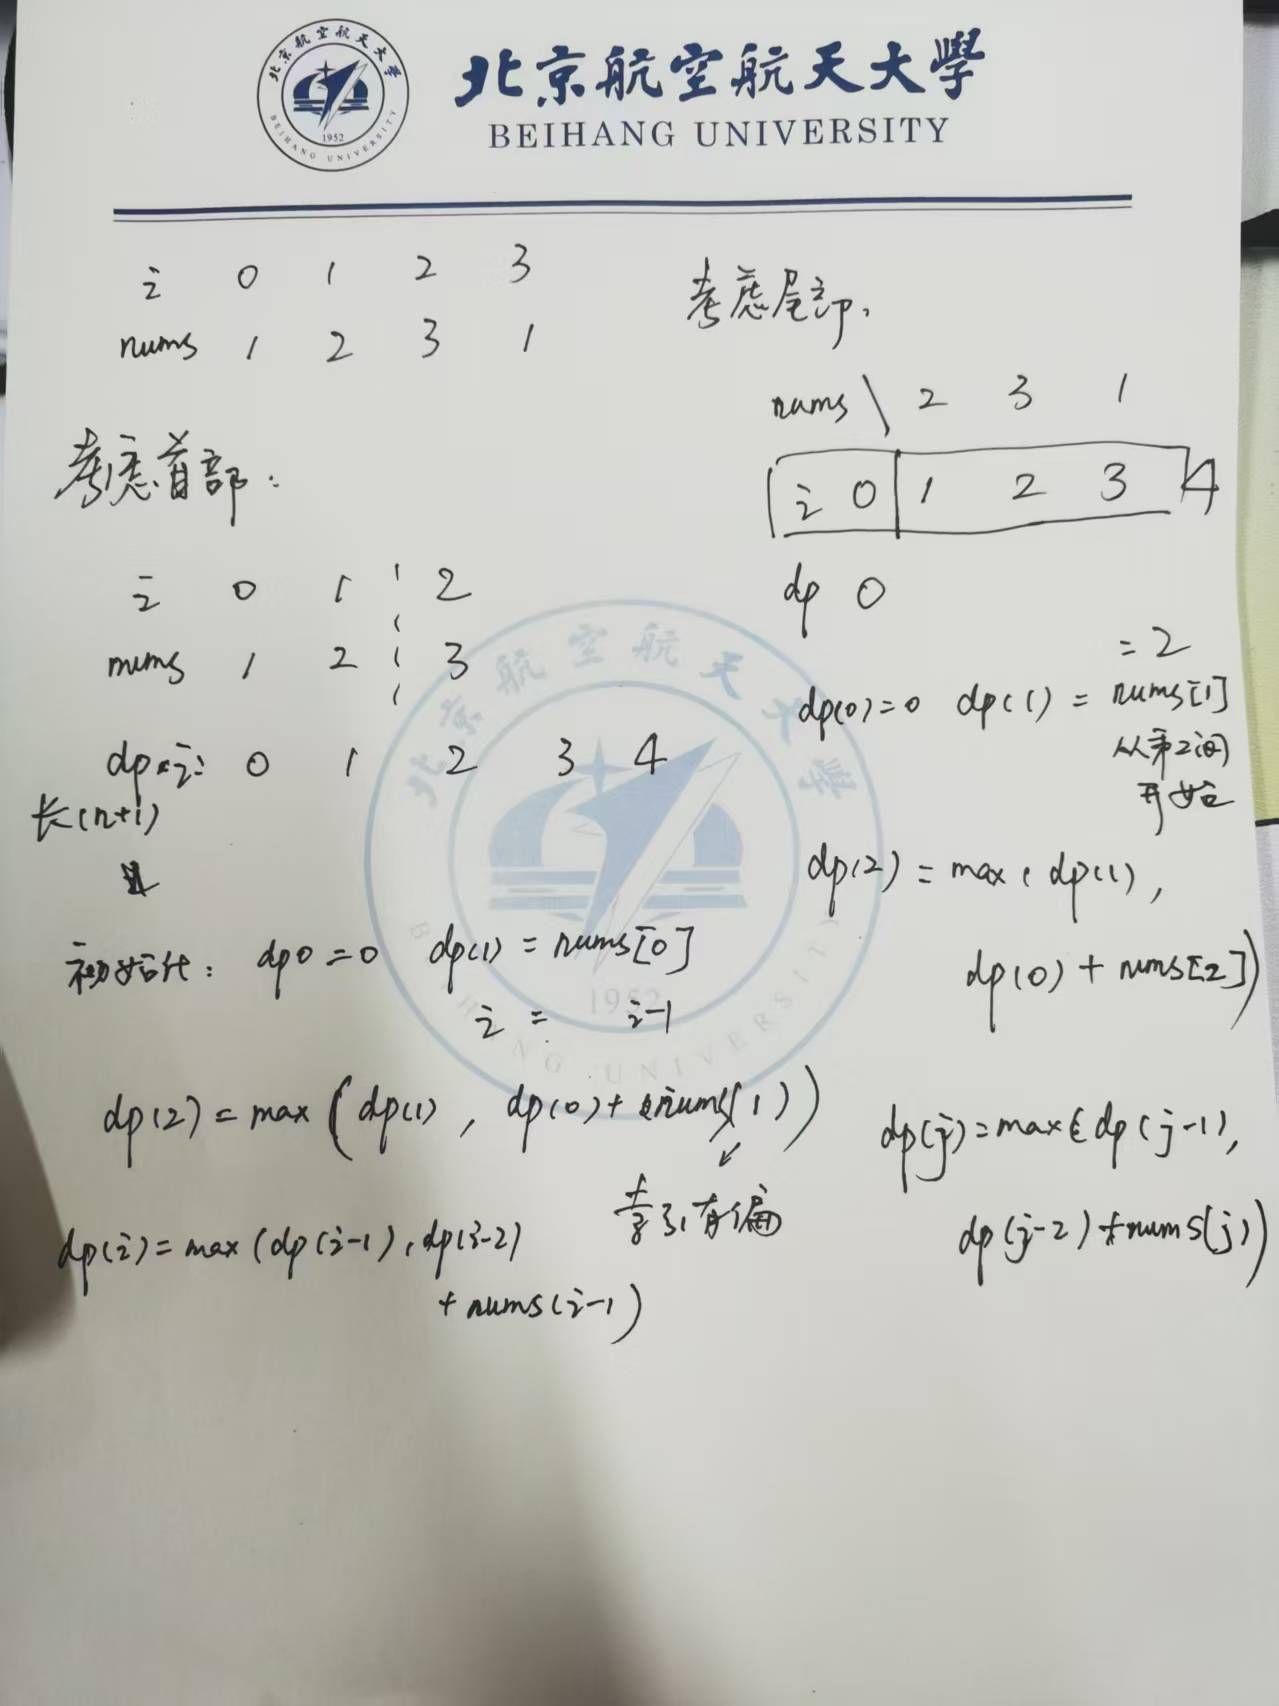 北京航空航天大學
BEIHANG UNIVERSITY
北京航空航天大学
1952
BEIHANG UNIVERSITY
i 0 1 2 3
nums 1 2 3 1
考虑首部:
i 0 1 2
nums 1 2 3
dp i: 0 1 2 3 4
长(n+1)
初始化: dp0=0 dp(1) = nums[0]
i = i-1
dp(2) = max(dp(1), dp(0)+nums(1))
索引有偏
dp(i) = max(dp(i-1), dp(i-2)
+ nums(i-1))
考虑尾部,
nums \ 2 3 1
i 0 1 2 3 4
dp 0
=2
dp(0)=0 dp(1) = nums[1]
从第2间
开始
dp(2) = max(dp(1),
dp(0) + nums[2])
dp(j) = max(dp(j-1),
dp(j-2)+nums(j))
北京航空航天大學
1952
BEIHANG UNIVERSITY